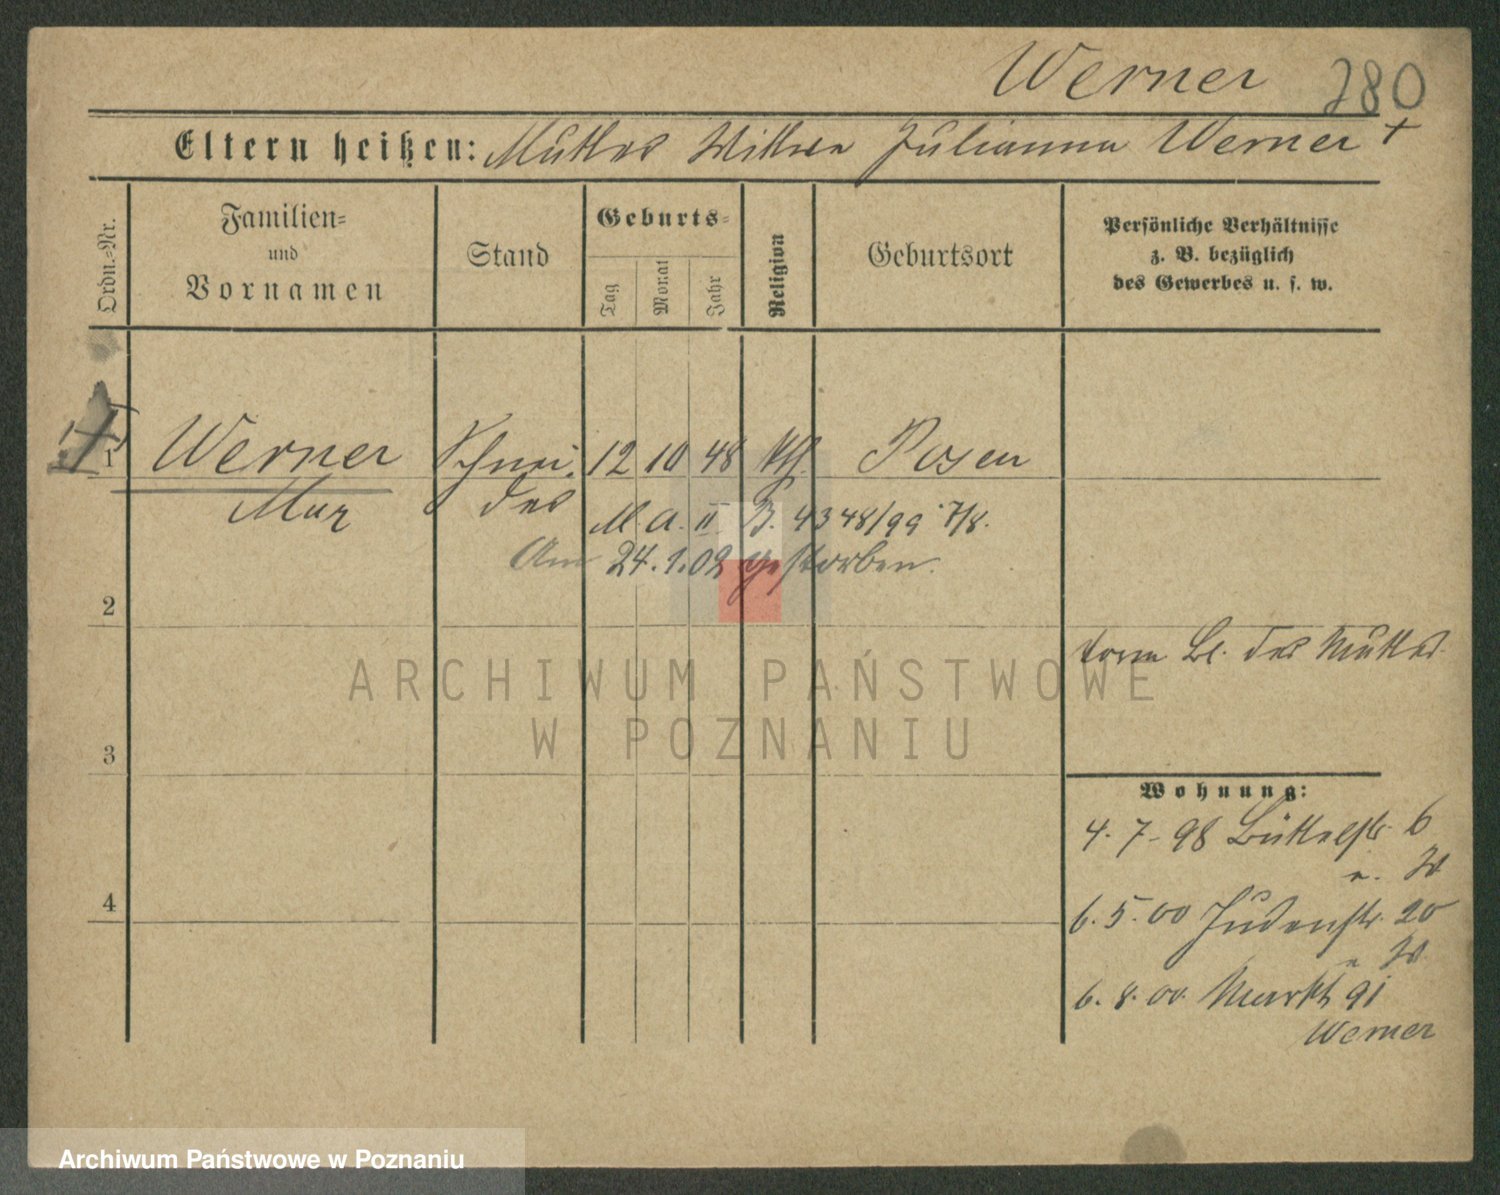 Werner 280
Eltern heißen: Mutter Witwe Julianna Werner +
Ordn.=Nr.
Familien=
und
Vornamen
Stand
Geburts=
Tag
Monat
Jahr
Religion
Geburtsort
Persönliche Verhältnisse
z. B. bezüglich
des Gewerbes u. s. w.
1 Werner Schnei- 12 10 48 kth. Posen
Max der
M. A. II B. 4348/99 7/8.
Am 24.1.02 gestorben.
2
vorm Bl. der Mutter
3
Wohnung:
4. 7. 98 Büttelstr. 6
4
6. 5. 00 Judenstr. 20
6. 8. 00. Markt 91
Werner
ARCHIWUM PAŃSTWOWE
W POZNANIU
Archiwum Państwowe w Poznaniu